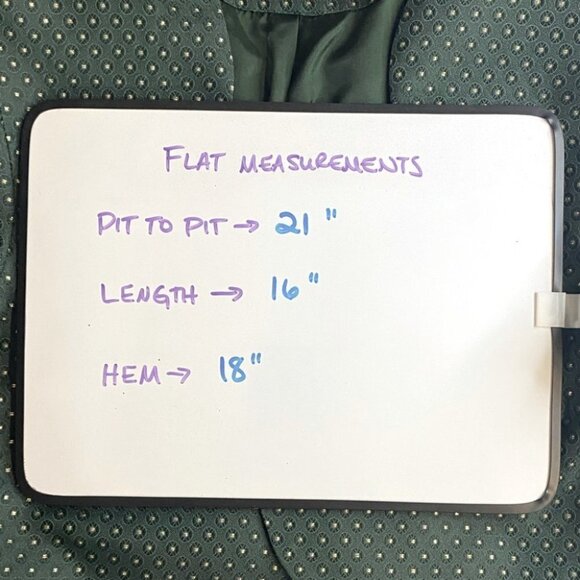 FLAT MEASUREMENTS
PIT TO PIT → 21 "
LENGTH → 16 "
HEM → 18"